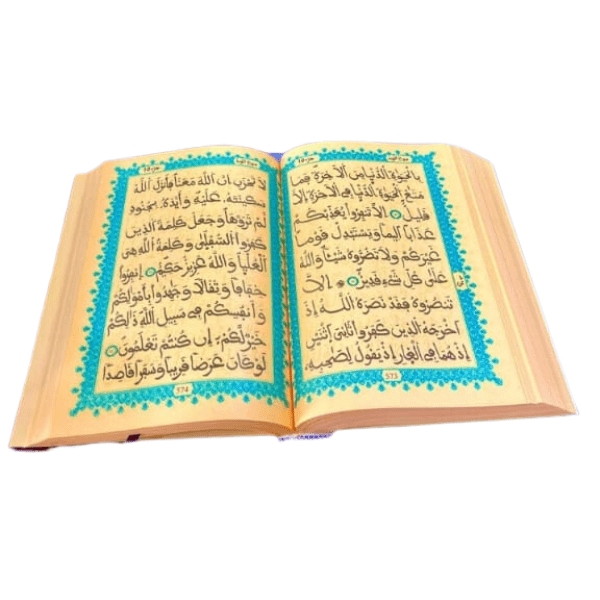 سورة التوبة
بِالْحَيَوٰةِ الدُّنْيَا مِنَ الَاخِرَةِ فَمَا
مَتَٰعُ الْحَيَوٰةِ الدُّنْيَا فِي الَاخِرَةِ إِلَّا
قَلِيلٌ اِلَّا تَنفِرُوا يُعَذِّبْكُمْ
عَذَاباً اَلِيماً وَيَسْتَبْدِلْ قَوْماً
غَيْرَكُمْ وَلَا تَضُرُّوهُ شَيْئاً وَاللَّهُ
عَلَىٰ كُلِّ شَيْءٍ قَدِيرٌ اِلَّا
تَنصُرُوهُ فَقَدْ نَصَرَهُ اللَّهُ إِذَ
اَخْرَجَهُ الَّذِينَ كَفَرُوا ثَانِيَ اَثْنَيْنِ
إِذْ هُمَا فِي الْغَارِ إِذْ يَقُولُ لِصَٰحِبِهِ
573
سورة التوبة
لَا تَحْزَنِ اِنَّ اللَّهَ مَعَنَا فَأَنزَلَ اللَّهُ
سَكِينَتَهُ عَلَيْهِ وَأَيَّدَهُ بِجُنُودٍ
لَّمْ تَرَوْهَا وَجَعَلَ كَلِمَةَ الَّذِينَ
كَفَرُوا السُّفْلَىٰ وَكَلِمَةُ اللَّهِ هِيَ
الْعُلْيَا وَاللَّهُ عَزِيزٌ حَكِيمٌ اِنفِرُوا
خِفَافاً وَثِقَالاً وَجَٰهِدُوا بِأَمْوَالِكُمْ
وَأَنفُسِكُمْ فِي سَبِيلِ اللَّهِ ذَالِكُمْ
خَيْرٌ لَّكُمُ إِن كُنتُمْ تَعْلَمُونَ
لَوْ كَانَ عَرَضاً قَرِيباً وَسَفَراً قَاصِداً
574